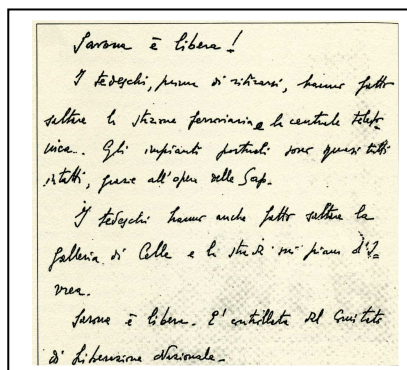 Savona è libera!
I tedeschi, prima di ritirarsi, hanno fatto
saltare la stazione ferroviaria e la centrale telefo-
nica. Gli impianti portuali sono quasi tutti
intatti, grazie all'opera delle Sap.
I tedeschi hanno anche fatto saltare la
galleria di Celle e la strada sui piani d'I-
vrea.
Savona è libera. E' controllata dal Comitato
di Liberazione Nazionale.